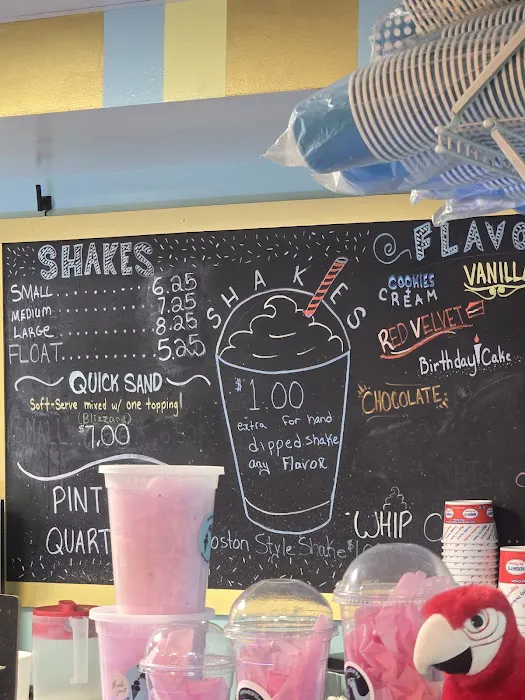 SHAKES
SMALL ........ 6.25
MEDIUM ........ 7.25
LARGE ........ 8.25
FLOAT ........ 5.25
QUICK SAND
Soft-Serve mixed w/ one topping!
(Blizzard)
$7.00
PINT
QUART
SHAKES
$1.00
extra for hand
dipped shake
any Flavor
oston Style Shake
FLAVO
COOKIES
+
CREAM
VANILL
RED VELVET
Birthday Cake
CHOCOLATE
WHIP